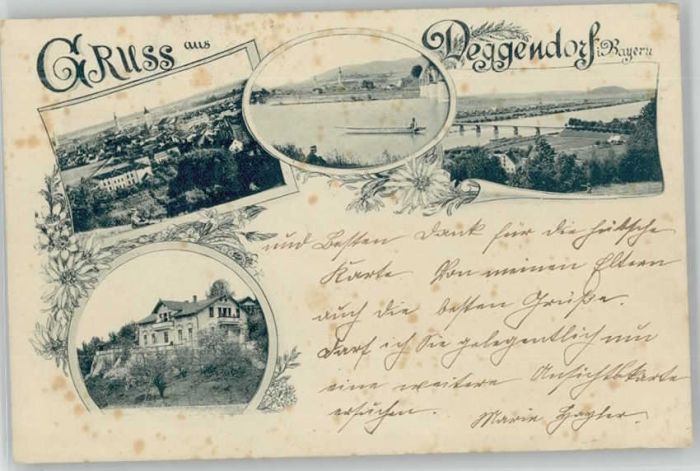 Gruss aus Deggendorf i. Bayern
und besten Dank für die hübsche
Karte. Von meinen Eltern
auch die besten Grüße.
Darf ich Sie gelegentlich um
eine weitere Ansichtskarte
ersuchen. Marie